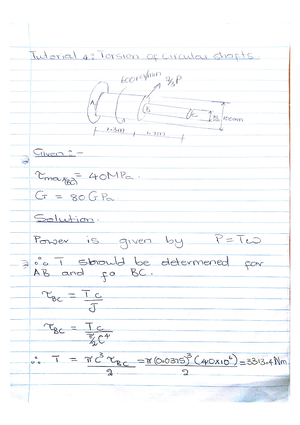 Tutorial 4: Torsion of circular shafts
600rev/min
2/3P
A
B
C
100mm
Given:-
τmax(BC) = 40MPa.
G = 80GPa
Solution.
Power is given by P = Tω
∴ T should be determened for
AB and fo BC.
τBC = Tc
J
τBC = Tc
π/2 C⁴
∴ T = πC³τBC = π(0.0375)³(40×10⁶) = 3313.4Nm
2 2